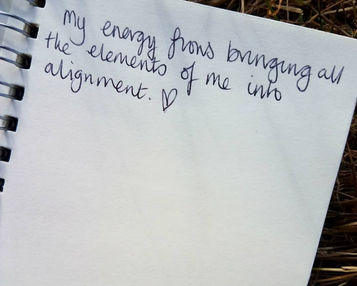 my energy flows bringing all
the elements of me into
alignment. ♡